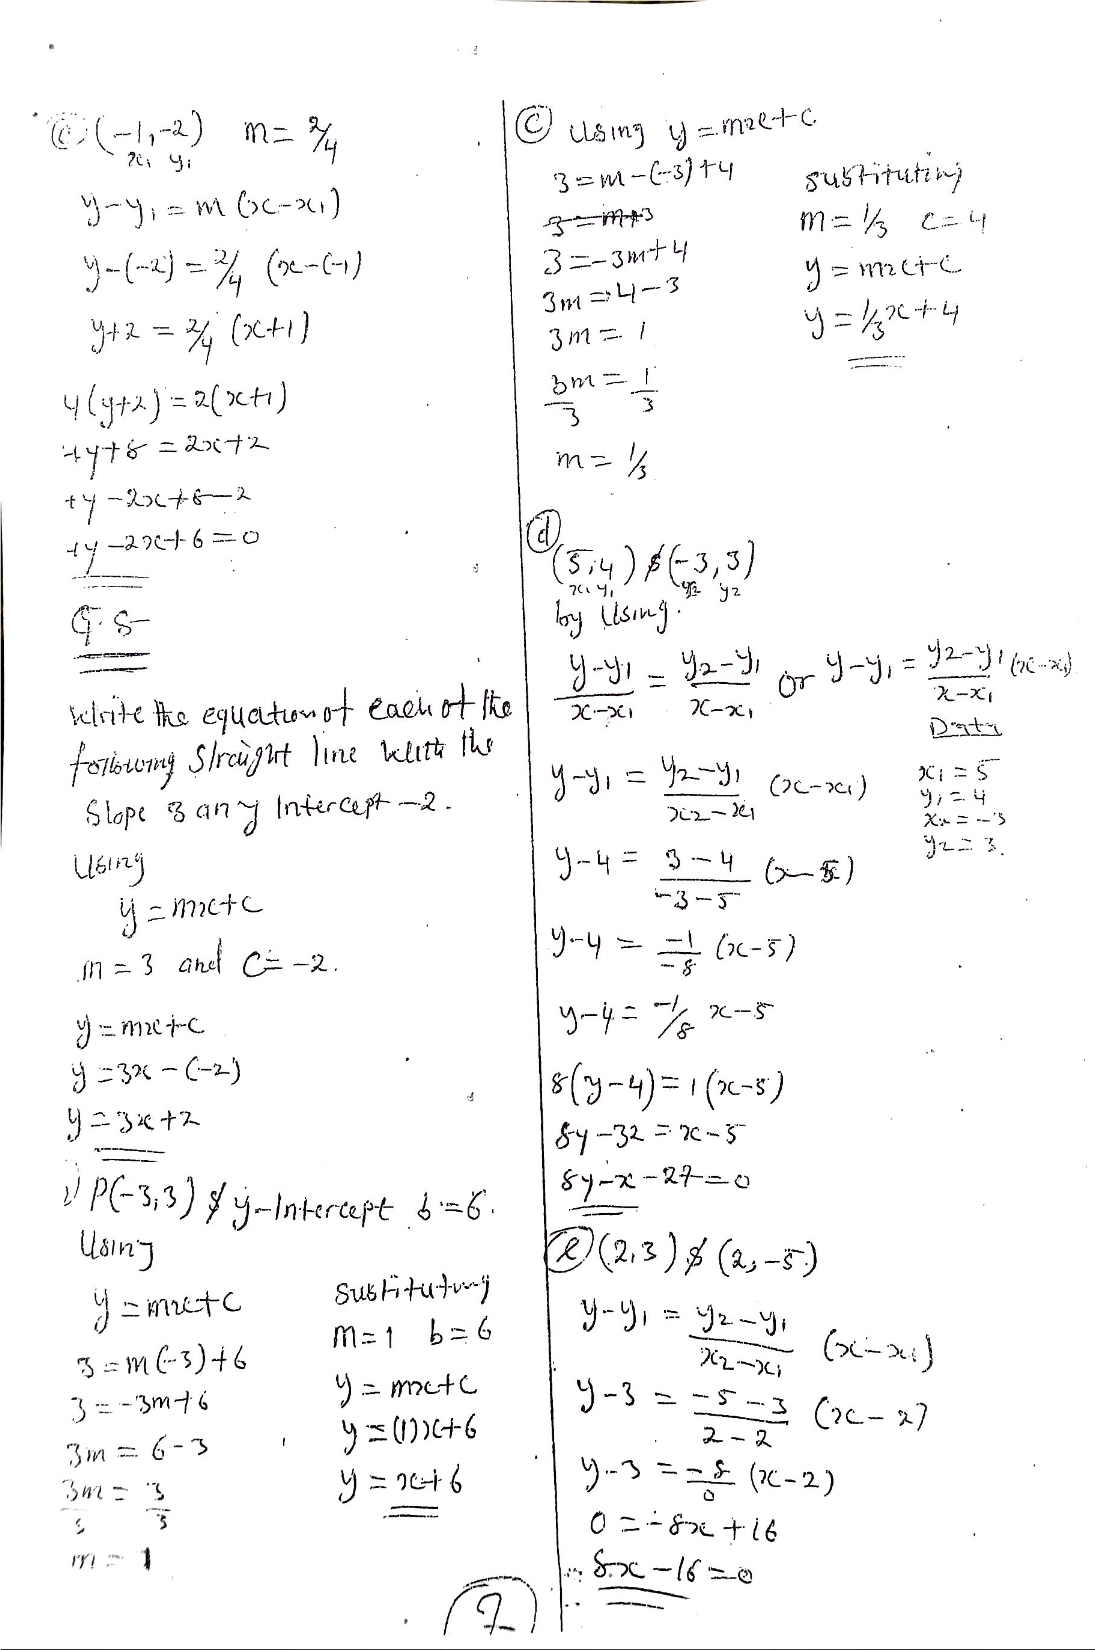 (c) (-1,-2) m = 2/4
x₁ y₁
y-y₁ = m(x-x₁)
y-(-2) = 2/4 (x-(-1)
y+2 = 2/4 (x+1)
4(y+2) = 2(x+1)
4y+8 = 2x+2
4y-2x+8-2
4y-2x+6=0
Q.5
Write the equation of each of the
following Straight line with the
Slope 3 any Intercept -2.
Using
y = mx+c
m = 3 and C = -2.
y = mx+c
y = 3x-(-2)
y = 3x+2
P(-3,3) & y-Intercept b=6.
Using
y = mx+c
3 = m(-3)+6
3 = -3m+6
3m = 6-3
3m/3 = 3/3
m = 1
Substituting
m=1 b=6
y = mx+c
y = (1)x+6
y = x+6
(c) Using y = mx+c
3 = m-(-3)+4
3 = m+3
3 = -3m+4
3m = 4-3
3m = 1
3m/3 = 1/3
m = 1/3
substituting
m = 1/3 c=4
y = mx+c
y = 1/3x+4
(d)
(5,4) & (-3,3)
x₁ y₁ x₂ y₂
by Using.
y-y₁/x-x₁ = y₂-y₁/x-x₁ or y-y₁ = y₂-y₁/x-x₁ (x-x₁)
Data
x₁ = 5
y₁ = 4
x₂ = -3
y₂ = 3.
y-y₁ = y₂-y₁/x₂-x₁ (x-x₁)
y-4 = 3-4/-3-5 (x-5)
y-4 = -1/-8 (x-5)
y-4 = -1/8 x-5
8(y-4) = 1(x-5)
8y-32 = x-5
8y-x-27=0
(e) (2,3) & (2,-5)
y-y₁ = y₂-y₁/x₂-x₁ (x-x₁)
y-3 = -5-3/2-2 (x-2)
y-3 = -8/0 (x-2)
0 = -8x+16
∴ 8x-16=0
7